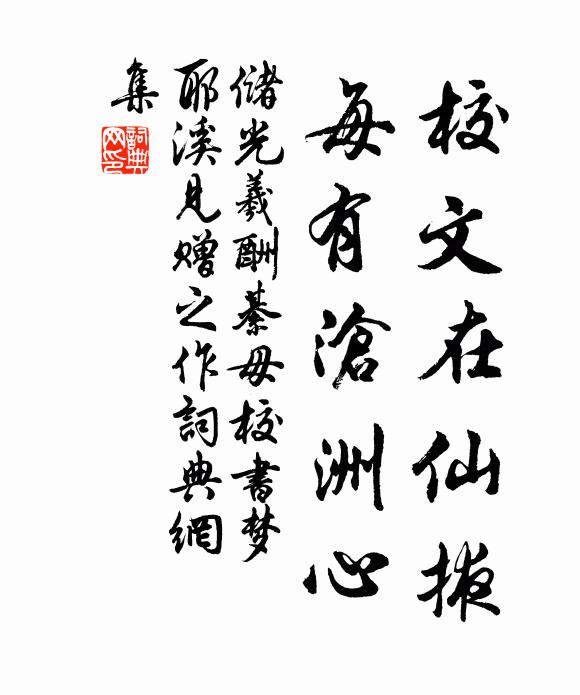 校文在仙掖
每有滄洲心
儲光羲酬綦毋校書梦
耶溪見贈之作詞典網
集
詞典網印